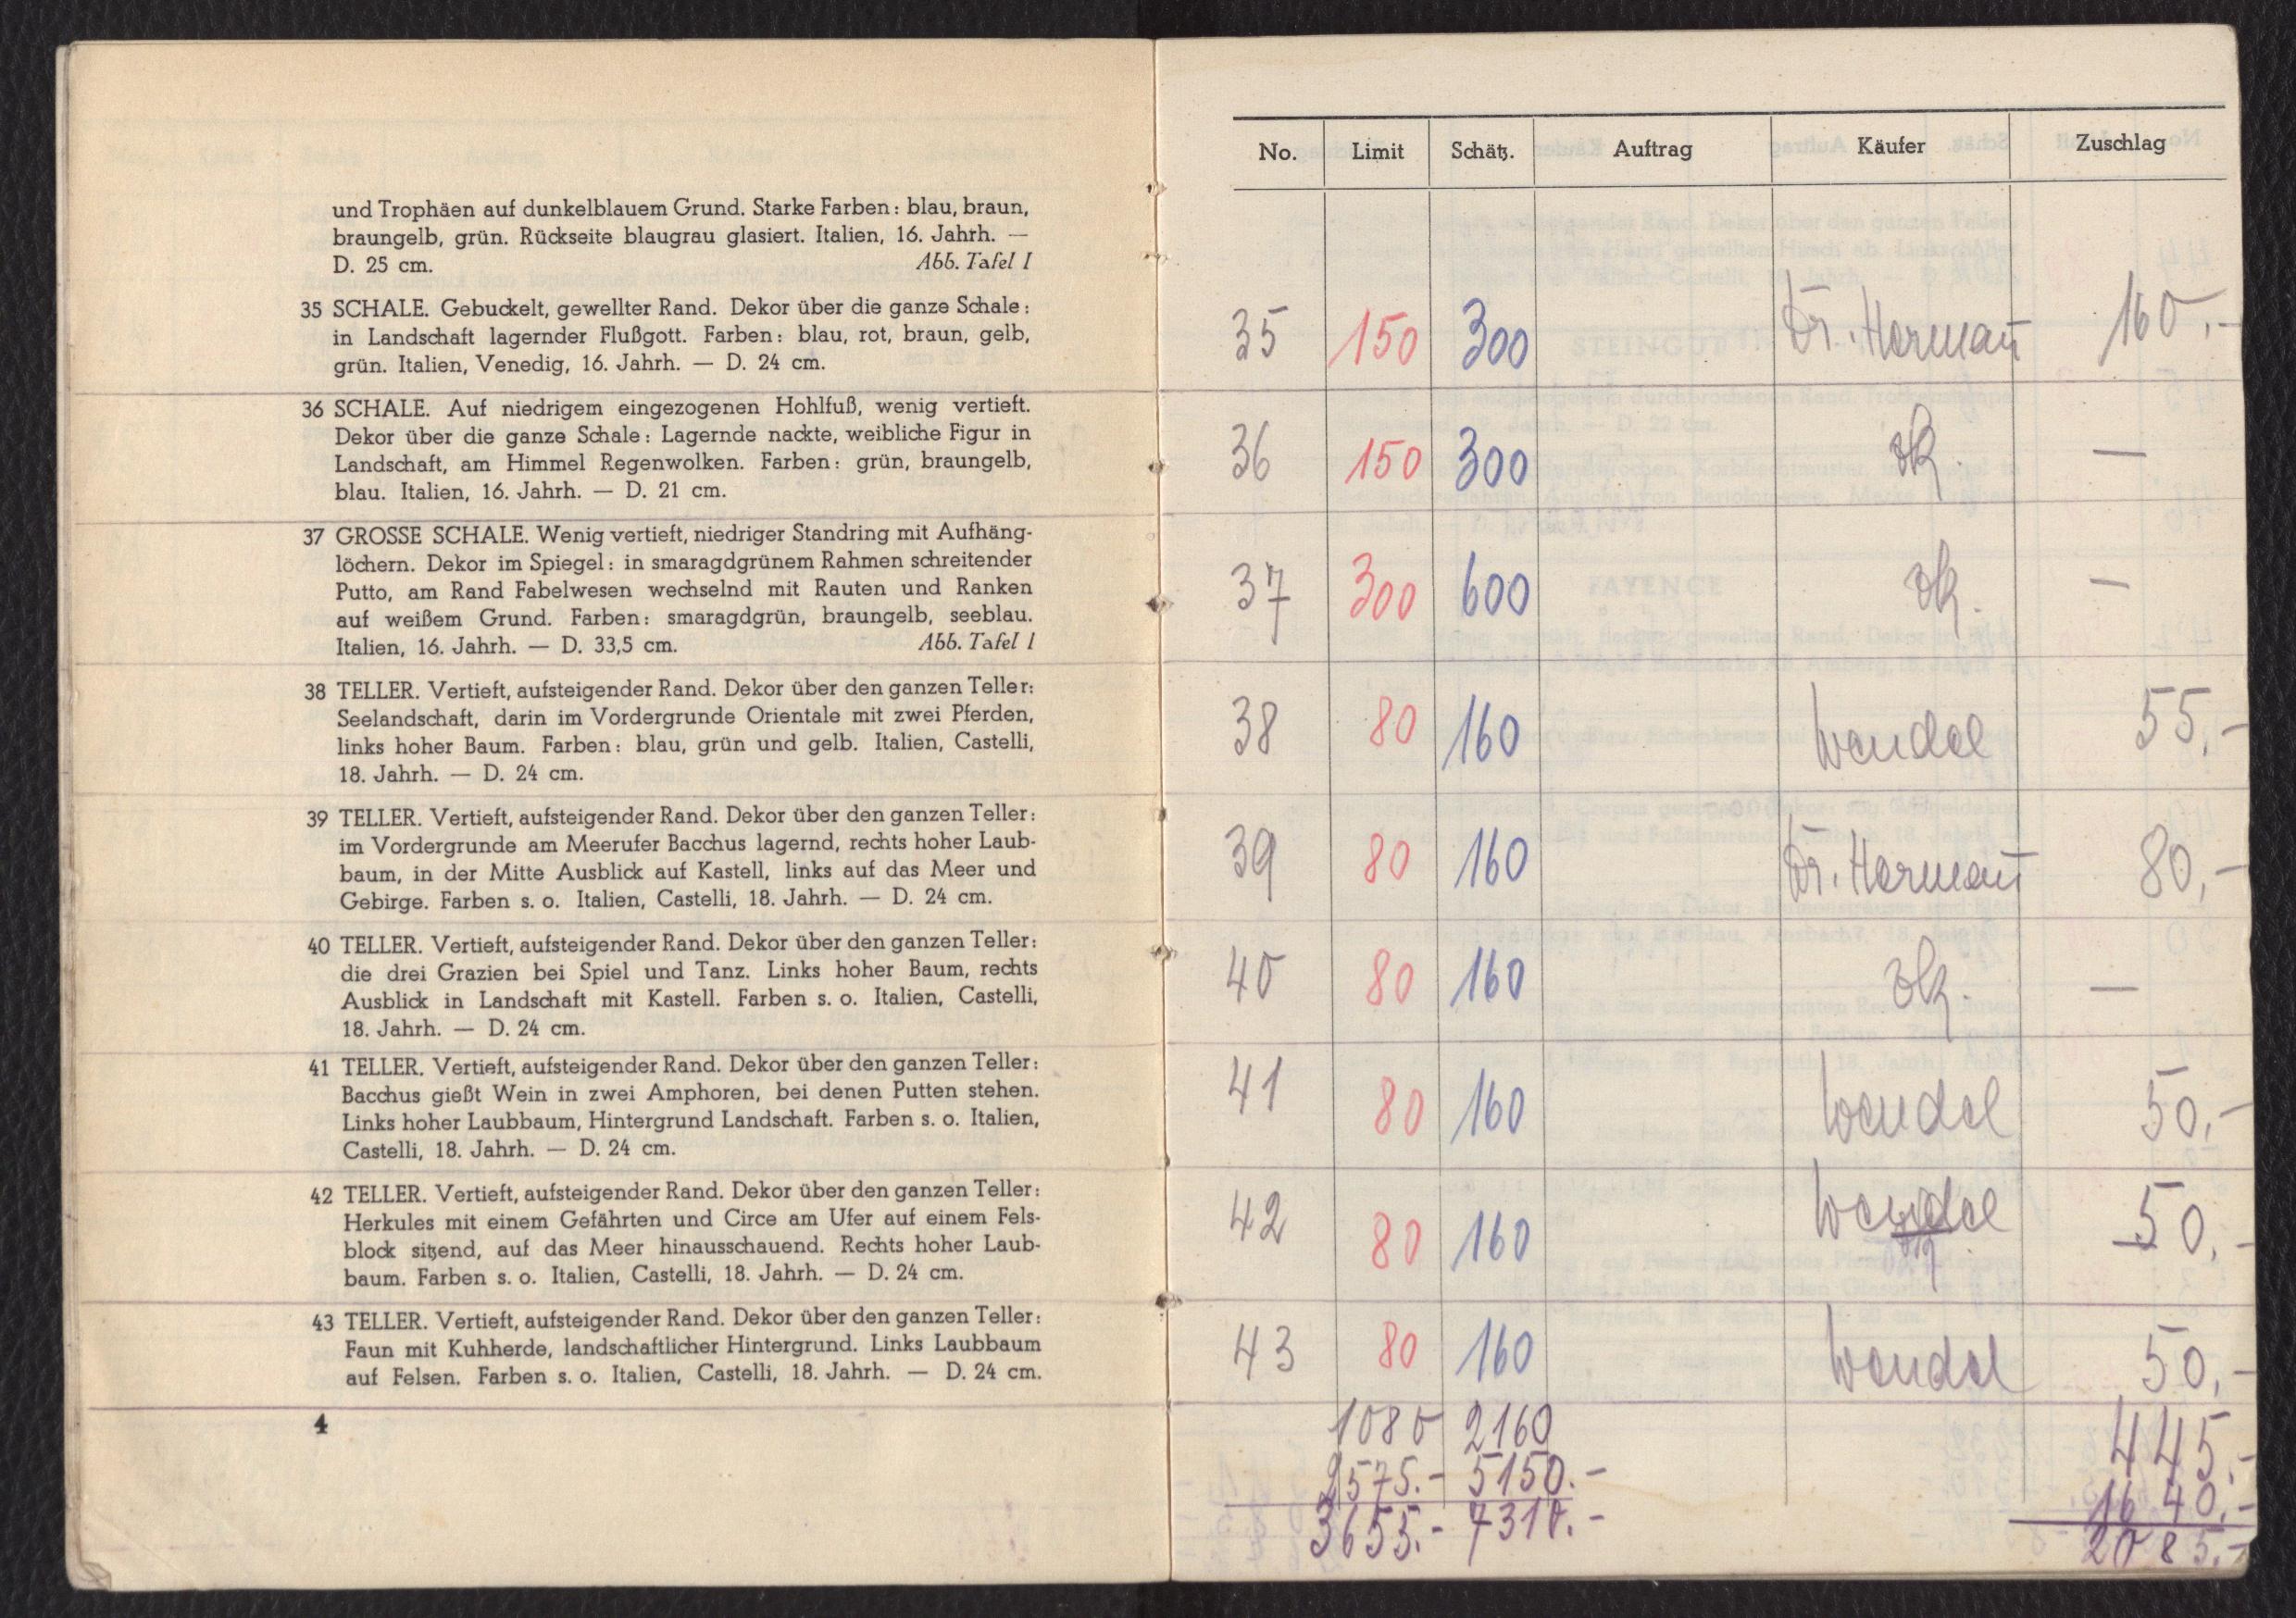 und Trophäen auf dunkelblauem Grund. Starke Farben: blau, braun,
braungelb, grün. Rückseite blaugrau glasiert. Italien, 16. Jahrh. —
D. 25 cm. Abb. Tafel I
35 SCHALE. Gebuckelt, gewellter Rand. Dekor über die ganze Schale:
in Landschaft lagernder Flußgott. Farben: blau, rot, braun, gelb,
grün. Italien, Venedig, 16. Jahrh. — D. 24 cm.
36 SCHALE. Auf niedrigem eingezogenen Hohlfuß, wenig vertieft.
Dekor über die ganze Schale: Lagernde nackte, weibliche Figur in
Landschaft, am Himmel Regenwolken. Farben: grün, braungelb,
blau. Italien, 16. Jahrh. — D. 21 cm.
37 GROSSE SCHALE. Wenig vertieft, niedriger Standring mit Aufhäng-
löchern. Dekor im Spiegel: in smaragdgrünem Rahmen schreitender
Putto, am Rand Fabelwesen wechselnd mit Rauten und Ranken
auf weißem Grund. Farben: smaragdgrün, braungelb, seeblau.
Italien, 16. Jahrh. — D. 33,5 cm. Abb. Tafel I
38 TELLER. Vertieft, aufsteigender Rand. Dekor über den ganzen Teller:
Seelandschaft, darin im Vordergrunde Orientale mit zwei Pferden,
links hoher Baum. Farben: blau, grün und gelb. Italien, Castelli,
18. Jahrh. — D. 24 cm.
39 TELLER. Vertieft, aufsteigender Rand. Dekor über den ganzen Teller:
im Vordergrunde am Meerufer Bacchus lagernd, rechts hoher Laub-
baum, in der Mitte Ausblick auf Kastell, links auf das Meer und
Gebirge. Farben s. o. Italien, Castelli, 18. Jahrh. — D. 24 cm.
40 TELLER. Vertieft, aufsteigender Rand. Dekor über den ganzen Teller:
die drei Grazien bei Spiel und Tanz. Links hoher Baum, rechts
Ausblick in Landschaft mit Kastell. Farben s. o. Italien, Castelli,
18. Jahrh. — D. 24 cm.
41 TELLER. Vertieft, aufsteigender Rand. Dekor über den ganzen Teller:
Bacchus gießt Wein in zwei Amphoren, bei denen Putten stehen.
Links hoher Laubbaum, Hintergrund Landschaft. Farben s. o. Italien,
Castelli, 18. Jahrh. — D. 24 cm.
42 TELLER. Vertieft, aufsteigender Rand. Dekor über den ganzen Teller:
Herkules mit einem Gefährten und Circe am Ufer auf einem Fels-
block sitzend, auf das Meer hinausschauend. Rechts hoher Laub-
baum. Farben s. o. Italien, Castelli, 18. Jahrh. — D. 24 cm.
43 TELLER. Vertieft, aufsteigender Rand. Dekor über den ganzen Teller:
Faun mit Kuhherde, landschaftlicher Hintergrund. Links Laubbaum
auf Felsen. Farben s. o. Italien, Castelli, 18. Jahrh. — D. 24 cm.
4
No. Limit Schätz. Auftrag Käufer Zuschlag
35 150 300 Dr. Herman̄ 160,-
36 150 300 —
37 300 600 —
38 80 160 Wendel 55,-
39 80 160 Dr. Herman̄ 80,-
40 80 160 —
41 80 160 Wendel 50,-
42 80 160 Wendel 50,-
43 80 160 Wendel 50,-
1080 2160 445.-
2575.- 5150.- 1640.-
3655.- 7310.- 2085.-